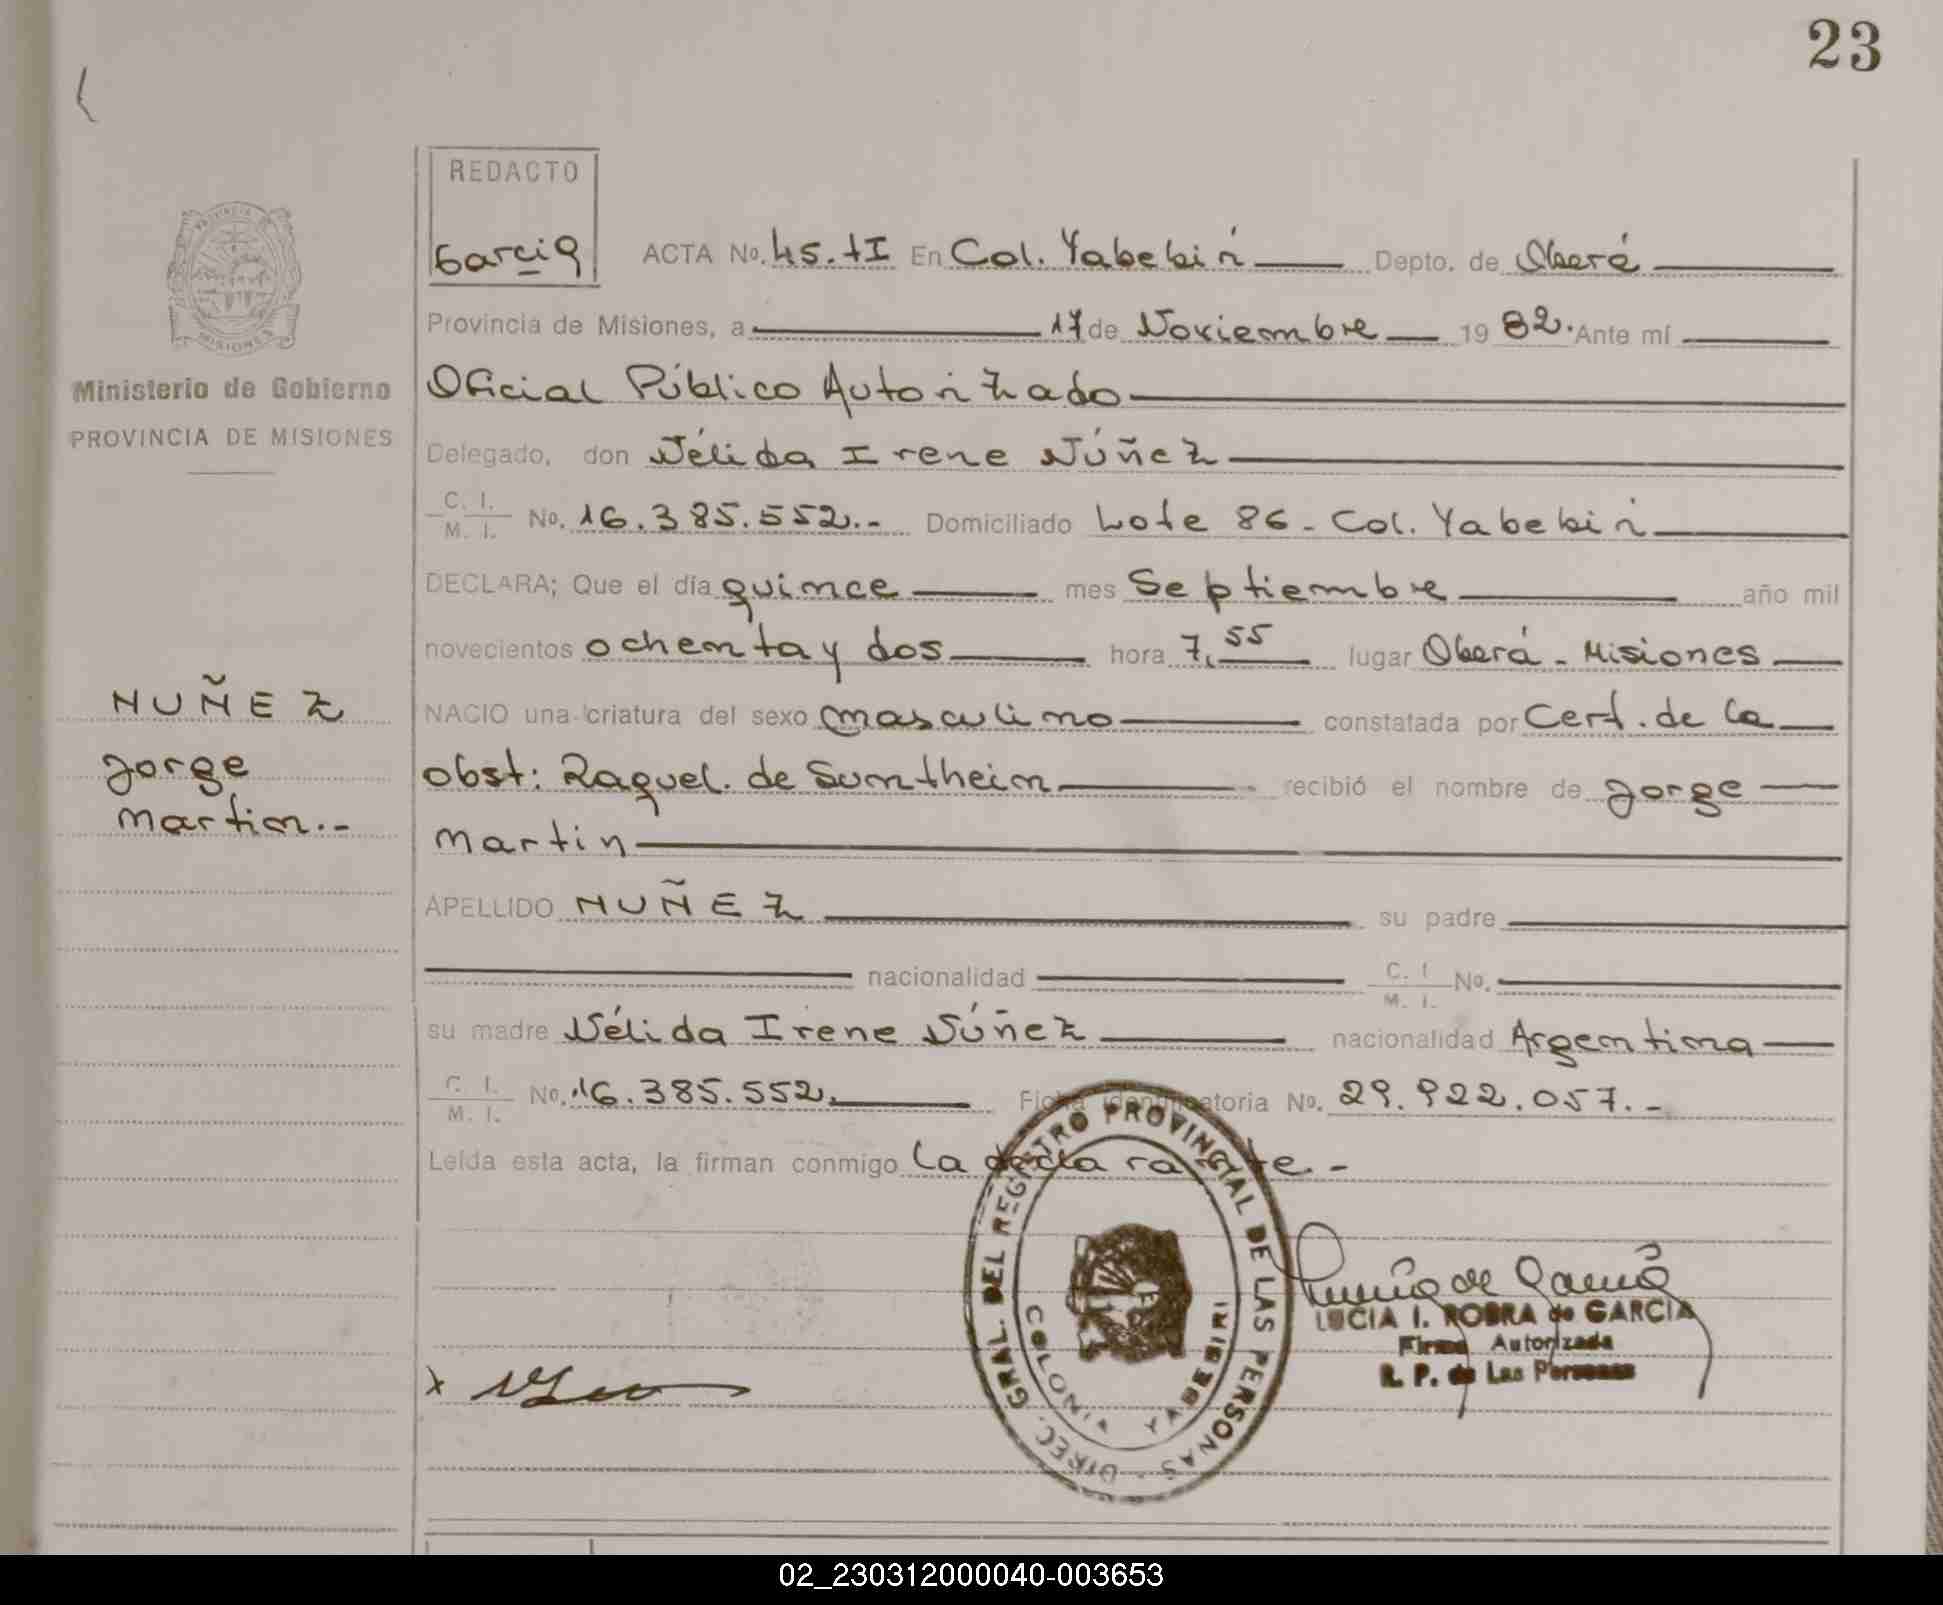 23
REDACTO
Garcia
ACTA No. 45.tI En Col. Yabebiri Depto. de Oberá
Provincia de Misiones, a 17 de Noviembre 1982. Ante mí
Oficial Público Autorizado
Delegado, don Nélida Irene Núñez
C. I. M. I. No. 16.385.552.- Domiciliado Lote 86 - Col. Yabebiri
DECLARA; Que el día quince mes Septiembre año mil
novecientos ochenta y dos hora 7,55 lugar Oberá - Misiones
NACIO una criatura del sexo masculino constatada por Cert. de la
obst: Raquel. de Sumtheim recibió el nombre de Jorge
Martin
APELLIDO NUÑEZ su padre
nacionalidad C. I M. I. No.
su madre Nélida Irene Núñez nacionalidad Argentina
C. I. M. I. No. 16.385.552. Ficha identificatoria No. 29.922.057.-
Leída esta acta, la firman conmigo la declarante.-
PROVINCIA DE
MISIONES
Ministerio de Gobierno
PROVINCIA DE MISIONES
NUÑEZ
Jorge
Martin.-
DIREC. GRAL. DEL REGISTRO PROVINCIAL DE LAS PERSONAS.
COLONIA YABEBIRI
de Garcia
LUCIA I. ROBRA de GARCIA
Firma Autorizada
R. P. de Las Personas
x
02_230312000040-003653